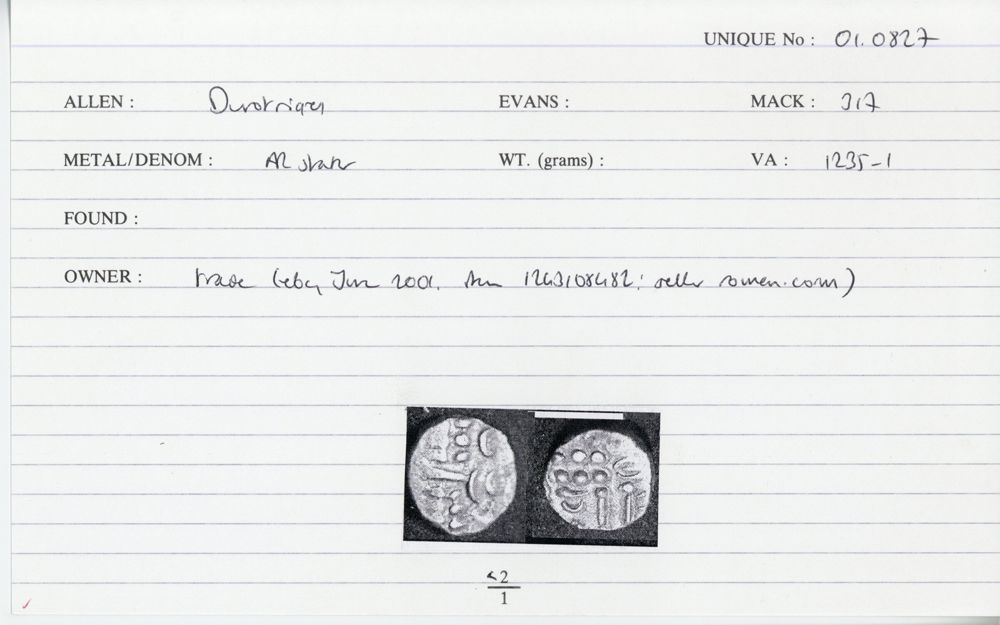 UNIQUE No : 01.0827
ALLEN : Durotriges EVANS : MACK : 317
METAL/DENOM : AR stater WT. (grams) : VA : 1235-1
FOUND :
OWNER : trade (eBay June 2001. item 1243108482; seller romen.com)
<2
1